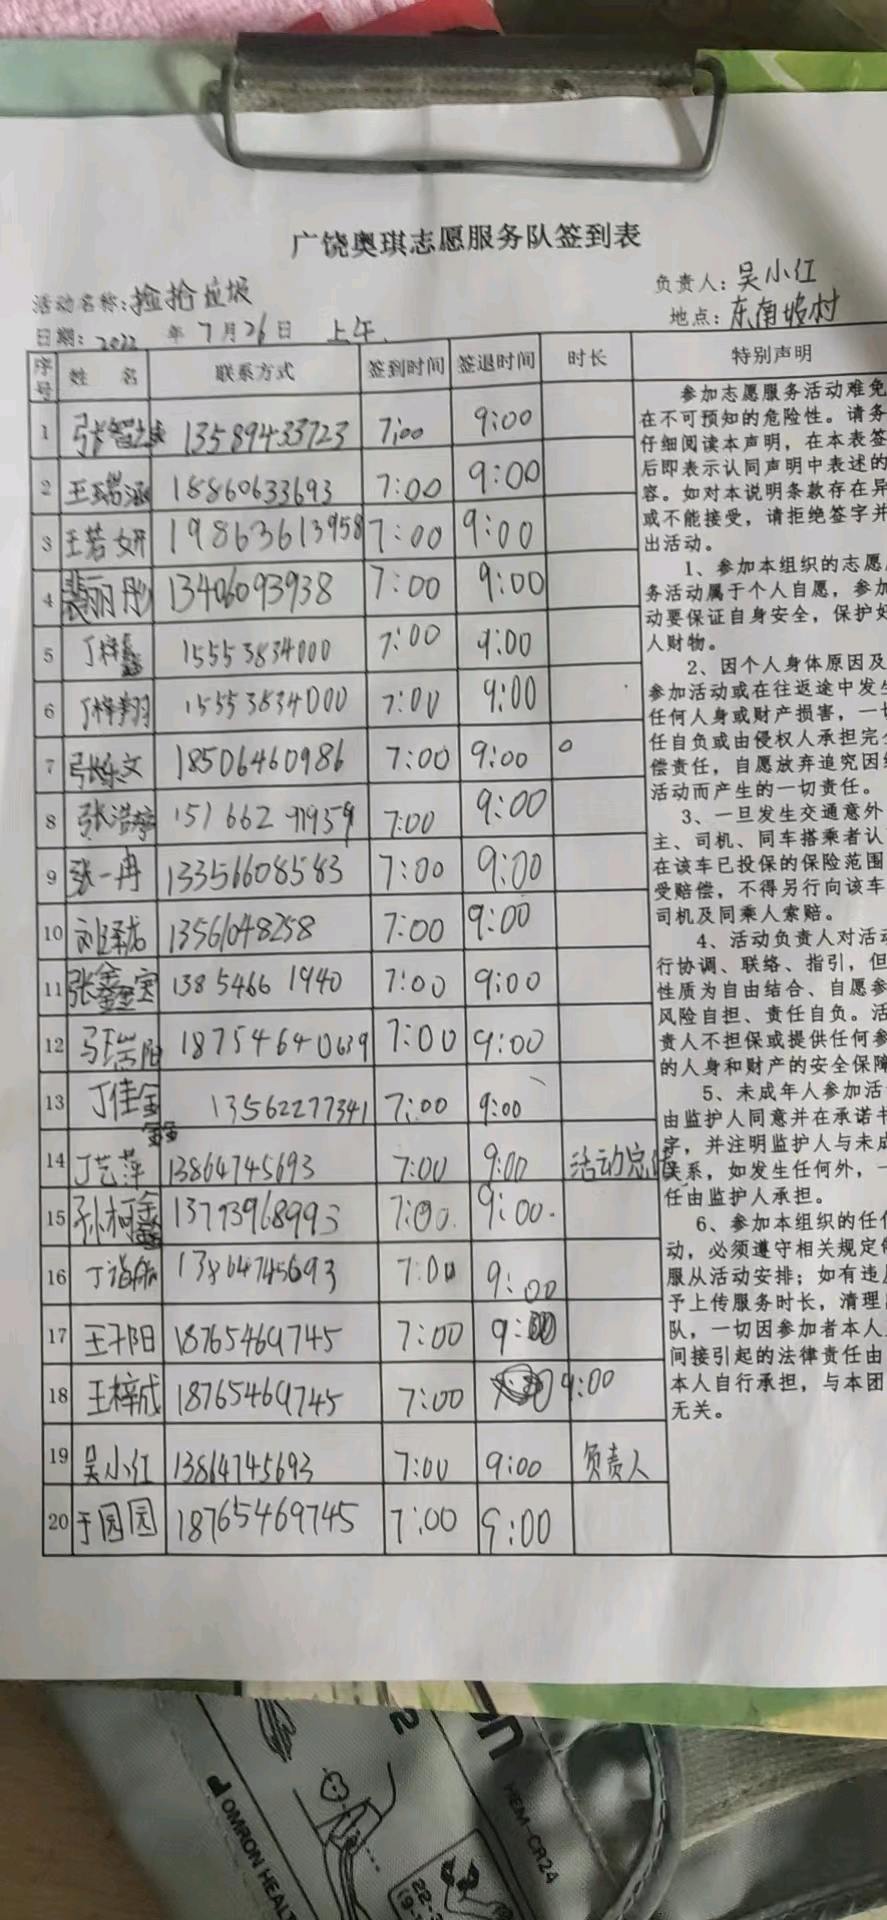 广饶奥琪志愿服务队签到表
活动名称:捡拾垃圾
负责人:吴小红
日期:2022年7月26日 上午.
地点:东南坡村
序号 姓名 联系方式 签到时间 签退时间 时长 特别声明
1 13589433723 7:00 9:00
2 王瑞涵 18860633693 7:00 9:00
3 王若妍 19863613958 7:00 9:00
4 裴丽彤 13406093938 7:00 9:00
5 丁梓鑫 15553834000 7:00 9:00
6 丁梓翔 15553834000 7:00 9:00
7 张乐文 18506460986 7:00 9:00
8 张浩 7:00 9:00
9 张一冉 13356608583 7:00 9:00
10 13561048258 7:00 9:00
11 张鑫宝 138 5466 1940 7:00 9:00
12 18754640639 7:00 9:00
13 丁佳鑫 13562277341 7:00 9:00
14 丁艺萍 13864745693 7:00 9:00 活动总
15 孙柯鑫 13793968993 7:00. 9:00.
16 13864745693 7:00 9:00
17 18765469745 7:00 9:00
18 王梓成 18765469745 7:00 9:00
19 吴小红 13864745693 7:00 9:00 负责人
20 于园园 18765469745 7:00 9:00
参加志愿服务活动难免
在不可预知的危险性。请务
仔细阅读本声明，在本表签
后即表示认同声明中表述的
容。如对本说明条款存在异
或不能接受，请拒绝签字并
出活动。
1、参加本组织的志愿
务活动属于个人自愿，参加
动要保证自身安全，保护好
人财物。
2、因个人身体原因及
参加活动或在往返途中发生
任何人身或财产损害，一切
任自负或由侵权人承担完全
偿责任，自愿放弃追究因
活动而产生的一切责任。
3、一旦发生交通意外
主、司机、同车搭乘者认
在该车已投保的保险范围
受赔偿，不得另行向该车
司机及同乘人索赔。
4、活动负责人对活动
行协调、联络、指引，但
性质为自由结合、自愿参
风险自担、责任自负。活
责人不担保或提供任何参
的人身和财产的安全保障
5、未成年人参加活
由监护人同意并在承诺书
字，并注明监护人与未成
关系，如发生任何外，一
任由监护人承担。
6、参加本组织的任何
动，必须遵守相关规定
服从活动安排；如有违
予上传服务时长，清理
队，一切因参加者本人
间接引起的法律责任由
本人自行承担，与本团
无关。
HEM-CR24
OMRON HEALTH
22-3